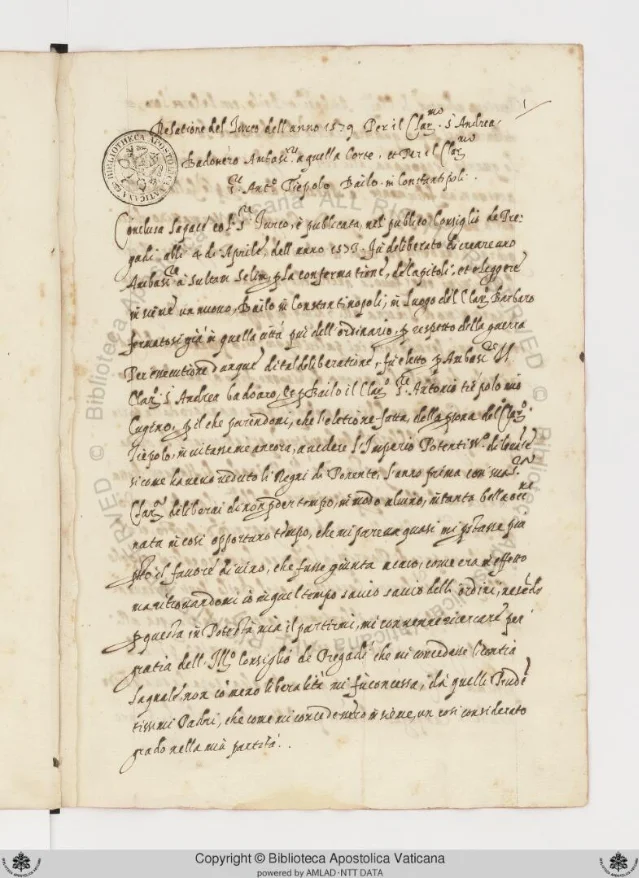 1
Relatione del Turco dell'anno 1579 Per il Clar.mo S.r Andrea
Badouero Ambas.re a quella Corte, et Per il Clar.mo
S.r Ant.o Tiepolo Bailo in Constantinopoli.
Conclusa la pace col S.r Turco, è publicata, nel publico Consiglio de Pre-
gadi alli 4 di Aprile, dell'anno 1573. Fù deliberato di creare uno
Ambas.re à Sultan Selim, p la confermatione, de Capitoli, et eleggere
insieme un nuovo, Bailo in Constantinopoli; in luogo del Clar. Barbaro
fermatosi già in quella città più dell'ordinario, p rispetto della guerra
Per essecutione dunque di tal deliberatione, fù eletto p Ambas.re Il
Clar. S.r Andrea badoaro, Et p Bailo il Clar.o S.r Antonio tiepolo mio
Cugino, p il che parendomi, che l'eletione fatta, della psona del Clar.o
Tiepolo, m'invitasse ancora, a vedere l'Imperio
si come haveva veduto li Regni di Ponente, l'anno prima con sua
Clar. deliberai di non pder tempo, in modo alcuno, in tanta bella occ
nata in cosi opportuno tempo, che mi pareva quasi mi
il favore divino, che fusse giunta meco, come era in effetto
ritrovandomi io in quel tempo savio delli ordini,
p questo in Potestà mia il partirmi, mi convenne ricercare per
gratia dell' Ill.o Consiglio de Pregadi che mi concedesse licentia
la quale, non cò meno liberalità mi fù concessa, da quelli Prudē
tissimi Padri, che come mi concedettero insieme, un cosi considerato
grado nella mia partita.
Copyright © Biblioteca Apostolica Vaticana
powered by AMLAD-NTT DATA